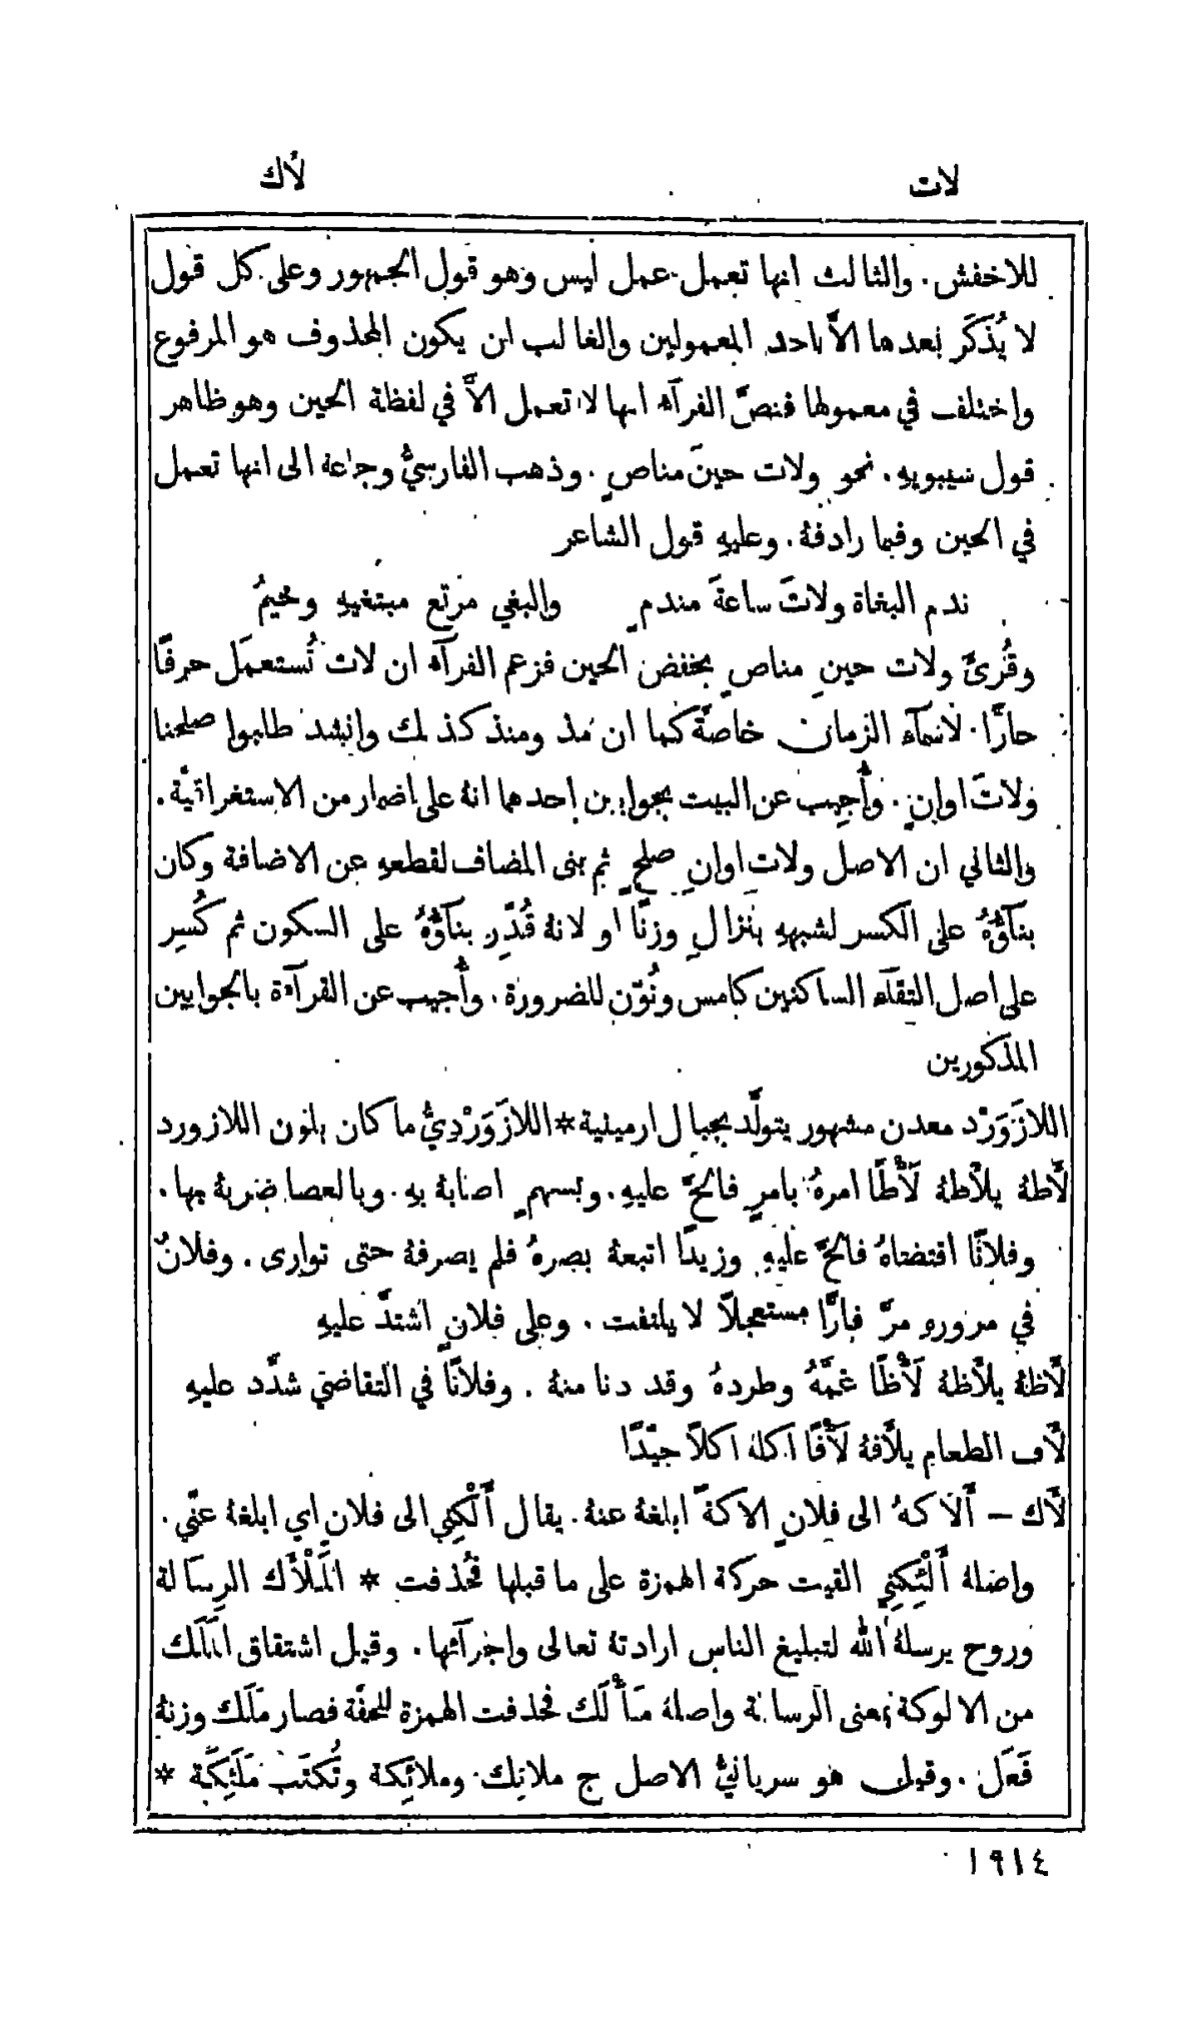 لات
لأك
للاخفش. والثالث انها تعمل عمل ليس وهو قول الجمهور وعلى كل قول
لا يُذكَر بعدها الّا احد المعمولين والغالب ان يكون المحذوف هو المرفوع
واختلف في معمولها فنصّ الفرآء انها لا تعمل الّا في لفظة الحين وهو ظاهر
قول سيبويهِ. نحو ولات حينَ مناصٍ. وذهب الفارسيُّ وجماعة الى انها تعمل
في الحين وفيما رادفهُ. وعليهِ قول الشاعر
ندم البغاة ولاتَ ساعةَ مندمٍ والبغي مرتع مبتغيهِ وخيمُ
وقُرئَ ولات حينِ مناصٍ بخفض الحين فزعم الفرآء ان لات تُستعمَل حرفًا
جارًّا لاسمآء الزمان خاصةً كما ان مذ ومنذ كذلك وانشد طلبوا صلحنا
ولاتَ اوانٍ. وأُجيب عن البيت بجوابين احدهما انهُ على اضمار من الاستغراقية.
والثاني ان الاصل ولات اوانِ صلحٍ ثم بنى المضاف لقطعهِ عن الاضافة وكان
بنآؤُهُ على الكسر لشبههِ بنزالِ وزنًا او لانهُ قُدِّر بنآؤُهُ على السكون ثم كُسِر
على اصل التقآء الساكنين كامس ونُوّن للضرورة. وأُجيب عن القرآءة بالجوابين
المذكورين
اللازَوَرْد معدن مشهور يتولَّد بجبال ارمينية * اللازَوَرْديُّ ما كان بلون اللازورد
لأَطهُ يلأَطهُ لَأْطًا امرهُ بامرٍ فالحَّ عليهِ. وبسهمٍ اصابهُ بهِ. وبالعصا ضربهُ بها.
وفلانًا اقتضاهُ فالحَّ عليهِ وزيدًا اتبعهُ بصرهُ فلم يصرفهُ حتى توارى. وفلانٌ
في مرورهِ مرَّ فارًّا مستعجلًا لا يلتفت. وعلى فلانٍ اشتدَّ عليهِ
لأَظهُ يلأَظهُ لَأْظًا غمَّهُ وطردهُ وقد دنا منهُ. وفلانًا في التقاضي شدَّد عليهِ
لأَف الطعام يلأَفهُ لَأْفًا اكلهُ اكلًا جيّدًا
لأَك – أَلَاكهُ الى فلانٍ الاكةً ابلغهُ عنهُ. يقال أَلْكِني الى فلانٍ اي ابلغهُ عنّي.
واصلهُ أَلْئِكني القيت حركة الهمزة على ما قبلها فحُذفت * المَلْأَك الرسالة
وروح يرسلهُ الله لتبليغ الناس ارادتهُ تعالى واجرآئها. وقيل اشتقاق المَلَك
من الالوكة بمعنى الرسالة واصلهُ مَأْلَك فحذفت الهمزة للخفَّة فصار مَلَك وزنهُ
فَعَل. وقيل هو سريانيُّ الاصل ج ملائك وملائكة وتُكتَب مَلَئِكَة *
١٩١٤